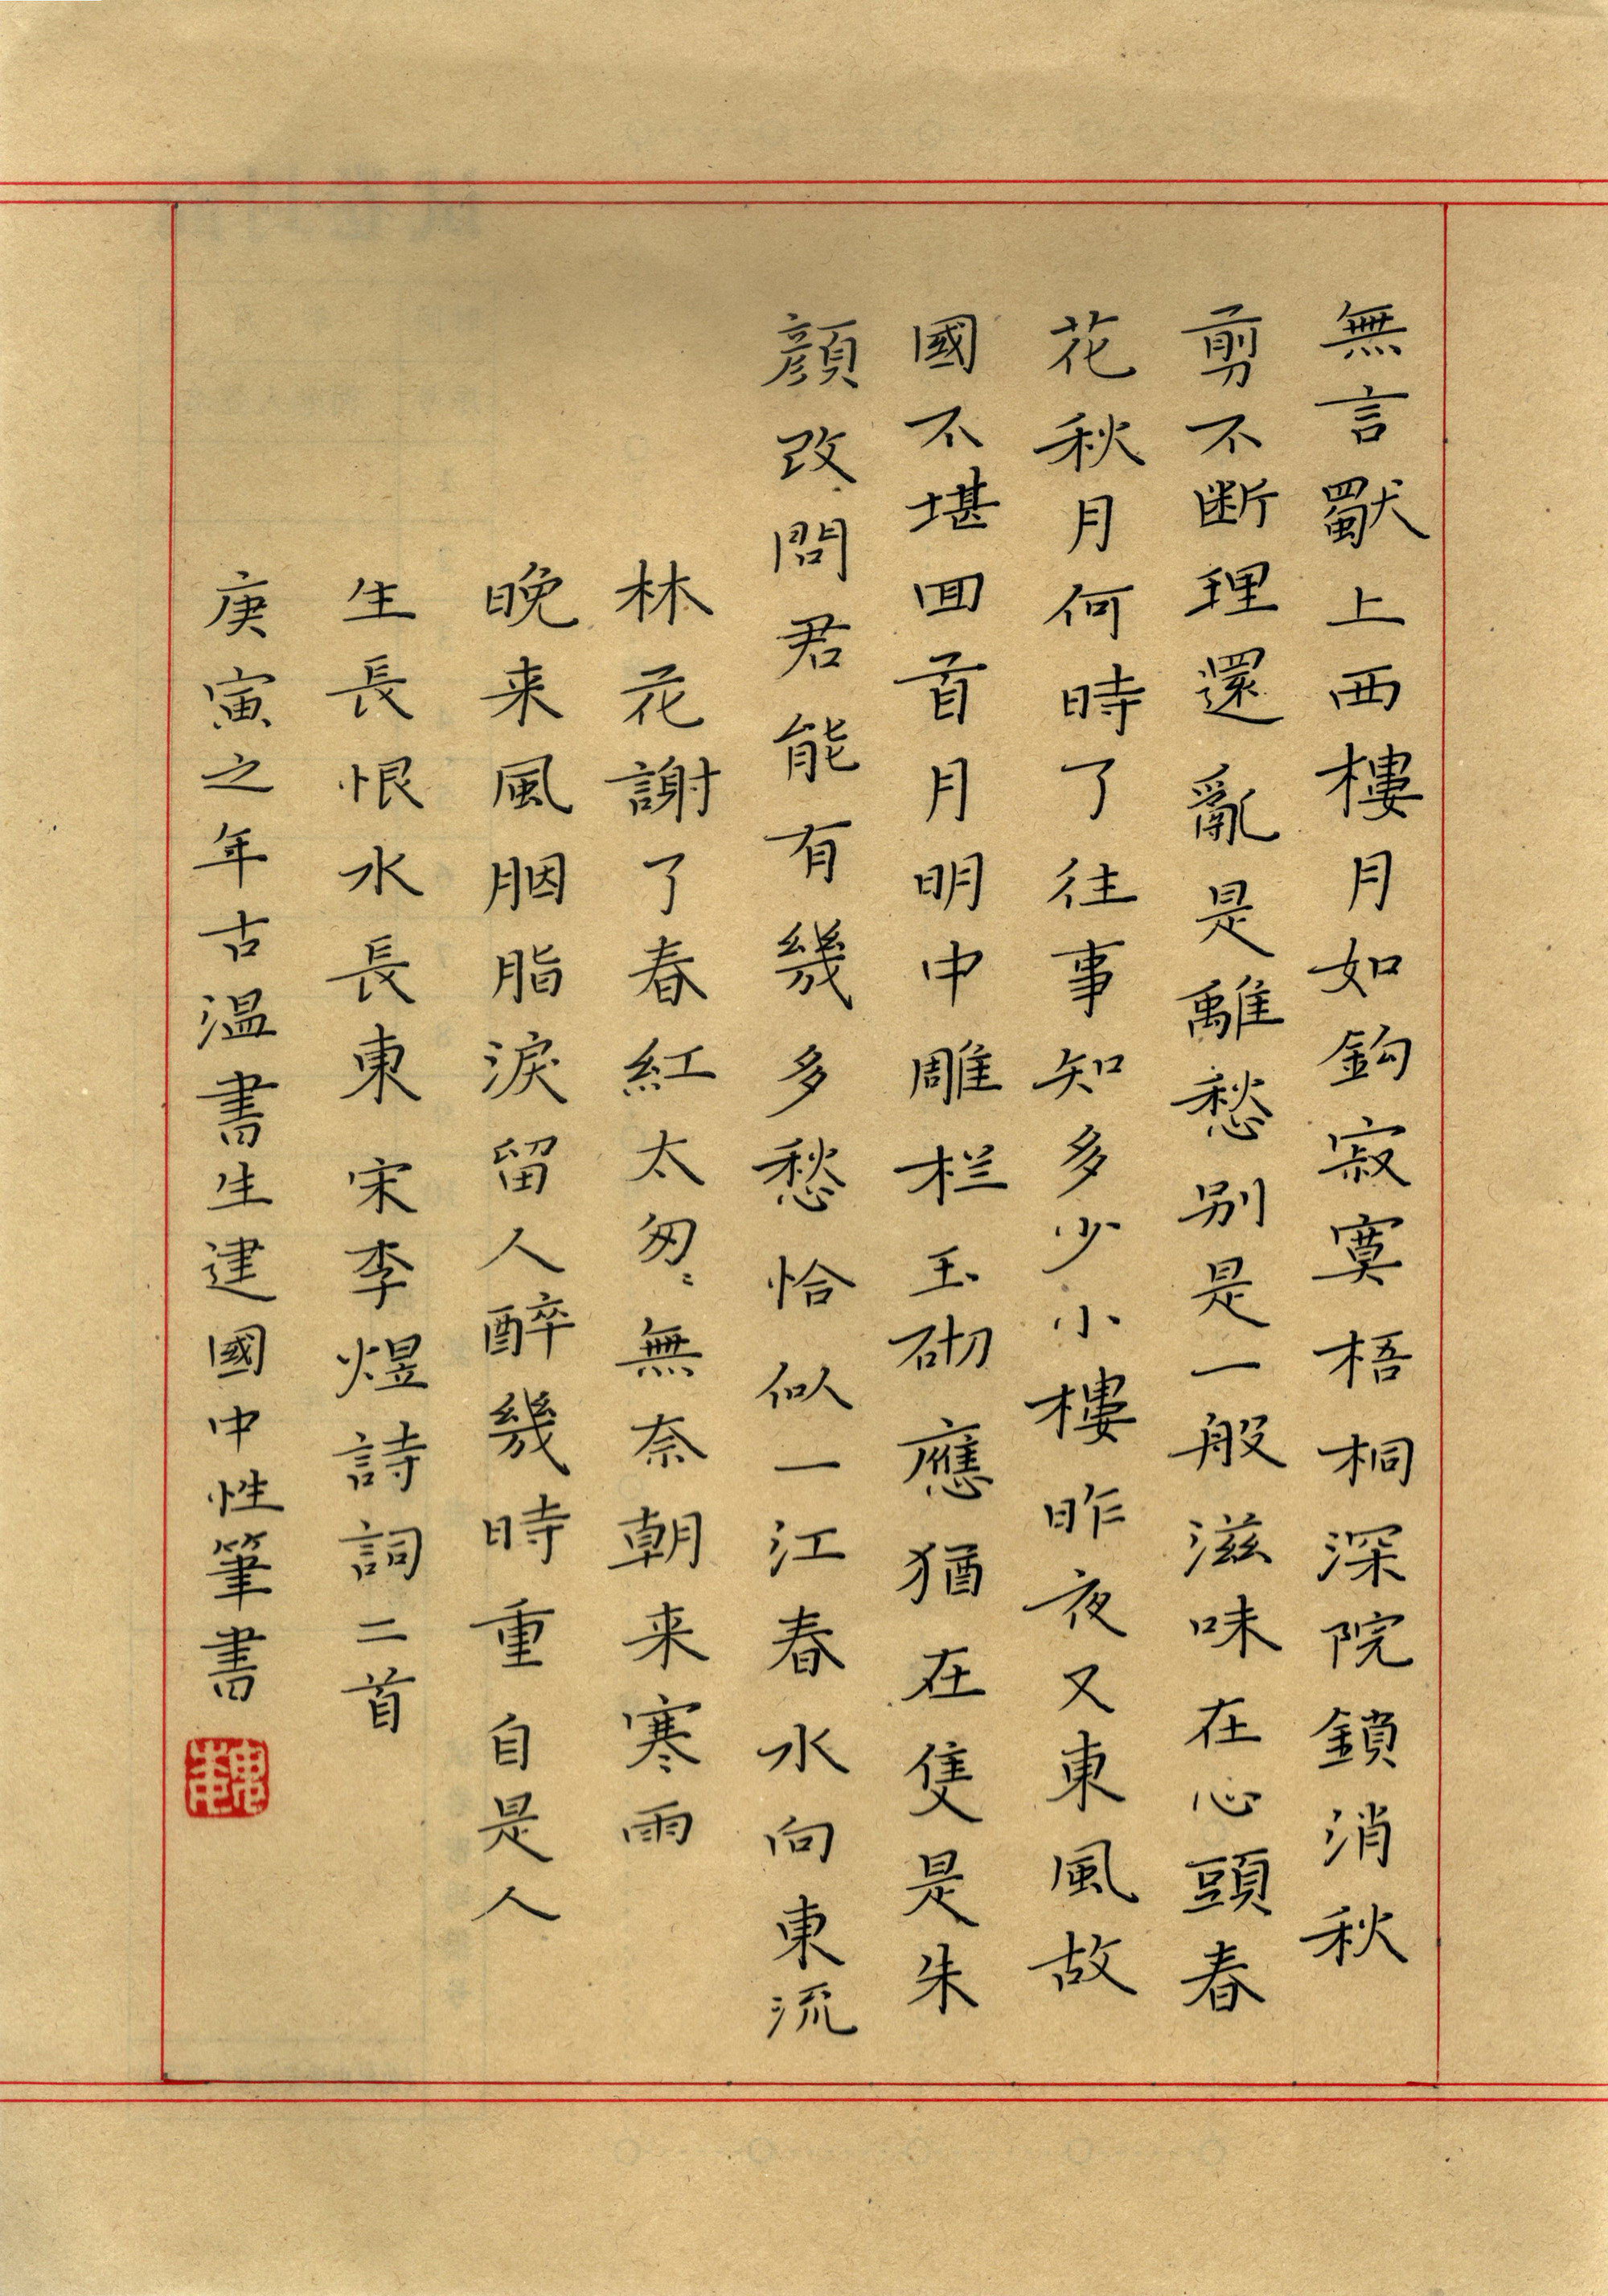 無言獸上西樓月如鈎寂寞梧桐深院鎖消秋
剪不断理還亂是離愁别是一般滋味在心頭春
花秋月何時了往事知多少小樓昨夜又東風故
國不堪回首月明中雕栏玉砌應猶在隻是朱
顔改問君能有幾多愁恰似一江春水向東流
林花謝了春紅太匆〻無奈朝来寒雨
晚来風胭脂淚留人醉幾時重自是人
生長恨水長東宋李煜詩詞二首
庚寅之年古温書生建國中性筆書